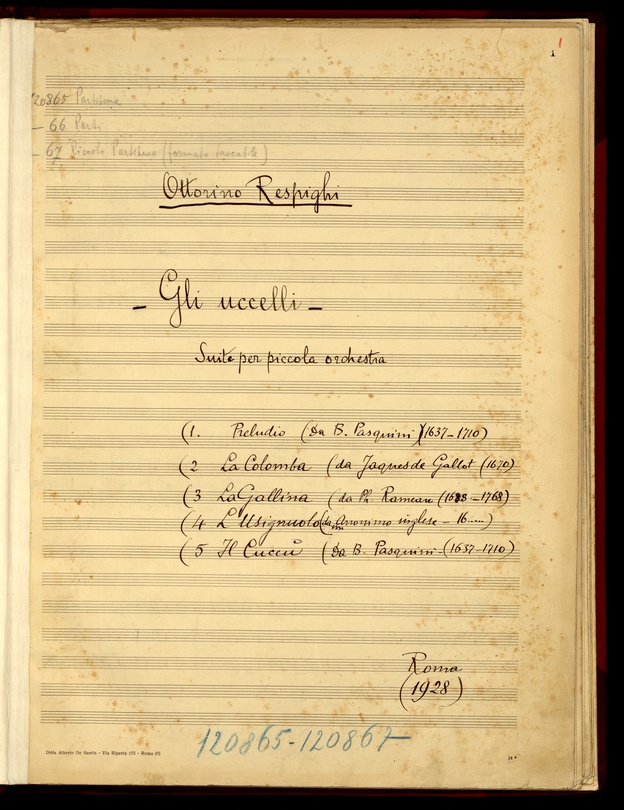 1
1
120865 Partitura
— 66 Parti
— 67 Piccola Partitura (formato tascabile)
Ottorino Respighi
– Gli uccelli –
Suite per piccola orchestra
(1. Preludio (da B. Pasquini) (1637–1710)
(2 La Colomba (da Jaques de Gallot (1670)
(3 La Gallina (da Ph. Rameau (1683–1768)
(4 L'Usignuolo (da Anonimo inglese – 16....)
(5 Il Cuccù (da B. Pasquini – (1637–1710)
Roma
(1928)
120865-120867
Ditta Alberto De Santis - Via Ripetta 105 - Roma (9)
24 *